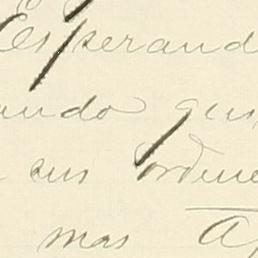 Esperand
ando gus
sus ordene
mas A